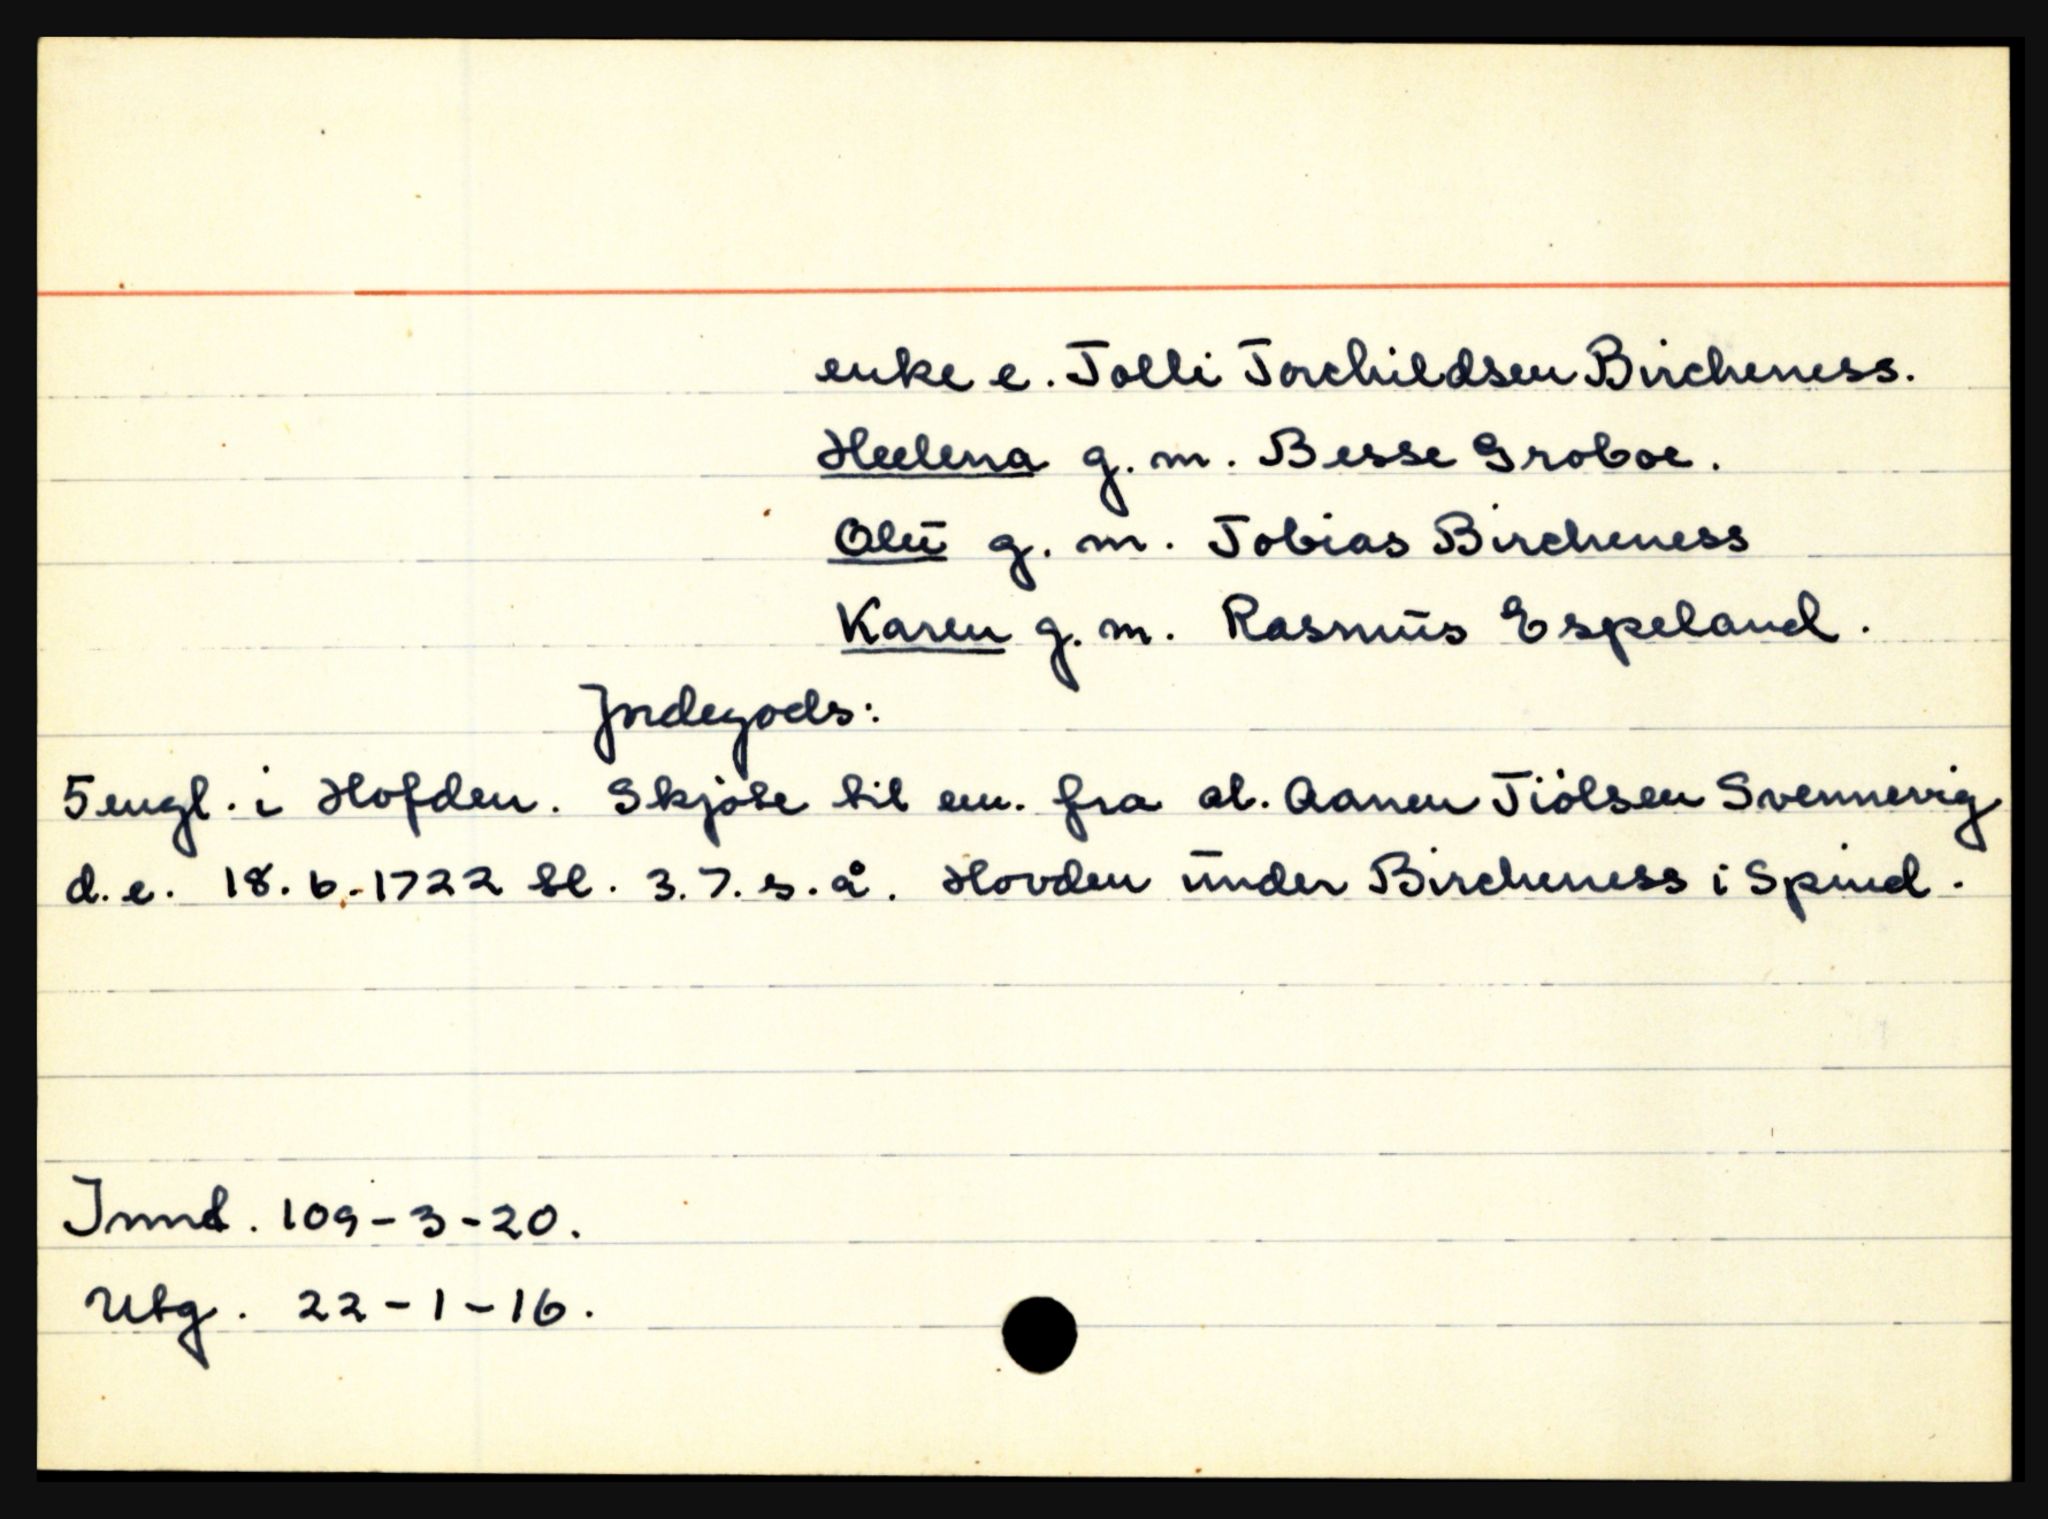 enke e. Tolli Torchildsen Bircheness.
Heelena g. m. Besse Groboe.
Olu g. m. Tobias Bircheness
Karen g. m. Rasmus Espeland.
Jordegods:
5 engl. i Hofden. Skjøte til em. fra al. Aanen Tiølsen Svennevig
d. e. 18.6.1722 tl. 3.7. s. å. Hovden under Bircheness i Spind.
Innd. 109-3-20.
Utg. 22-1-16.